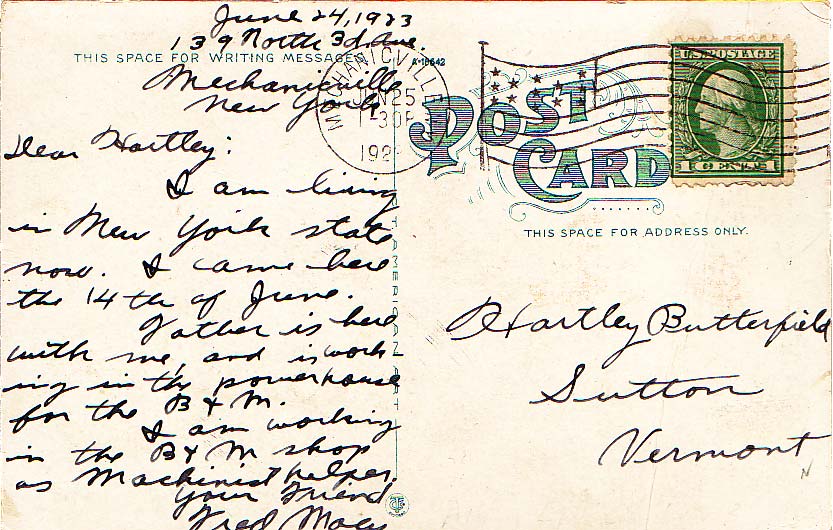 June 24, 1923
139 North 3d. Ave.
THIS SPACE FOR WRITING MESSAGES
Mechanicville
New York
Dear Hartley:
I am living
in New York state
now. I came here
the 14th of June.
Father is here
with me, and is work
ing in the powerhouse
for the B & M.
I am working
in the B & M shop
as Machinist helper.
Your Friend
Fred
A-18642
MECHANICVILLE
JUN 25
POST
CARD
U.S. POSTAGE
1 CENT 1
THIS SPACE FOR ADDRESS ONLY.
Hartley Butterfield
Sutton
Vermont
N